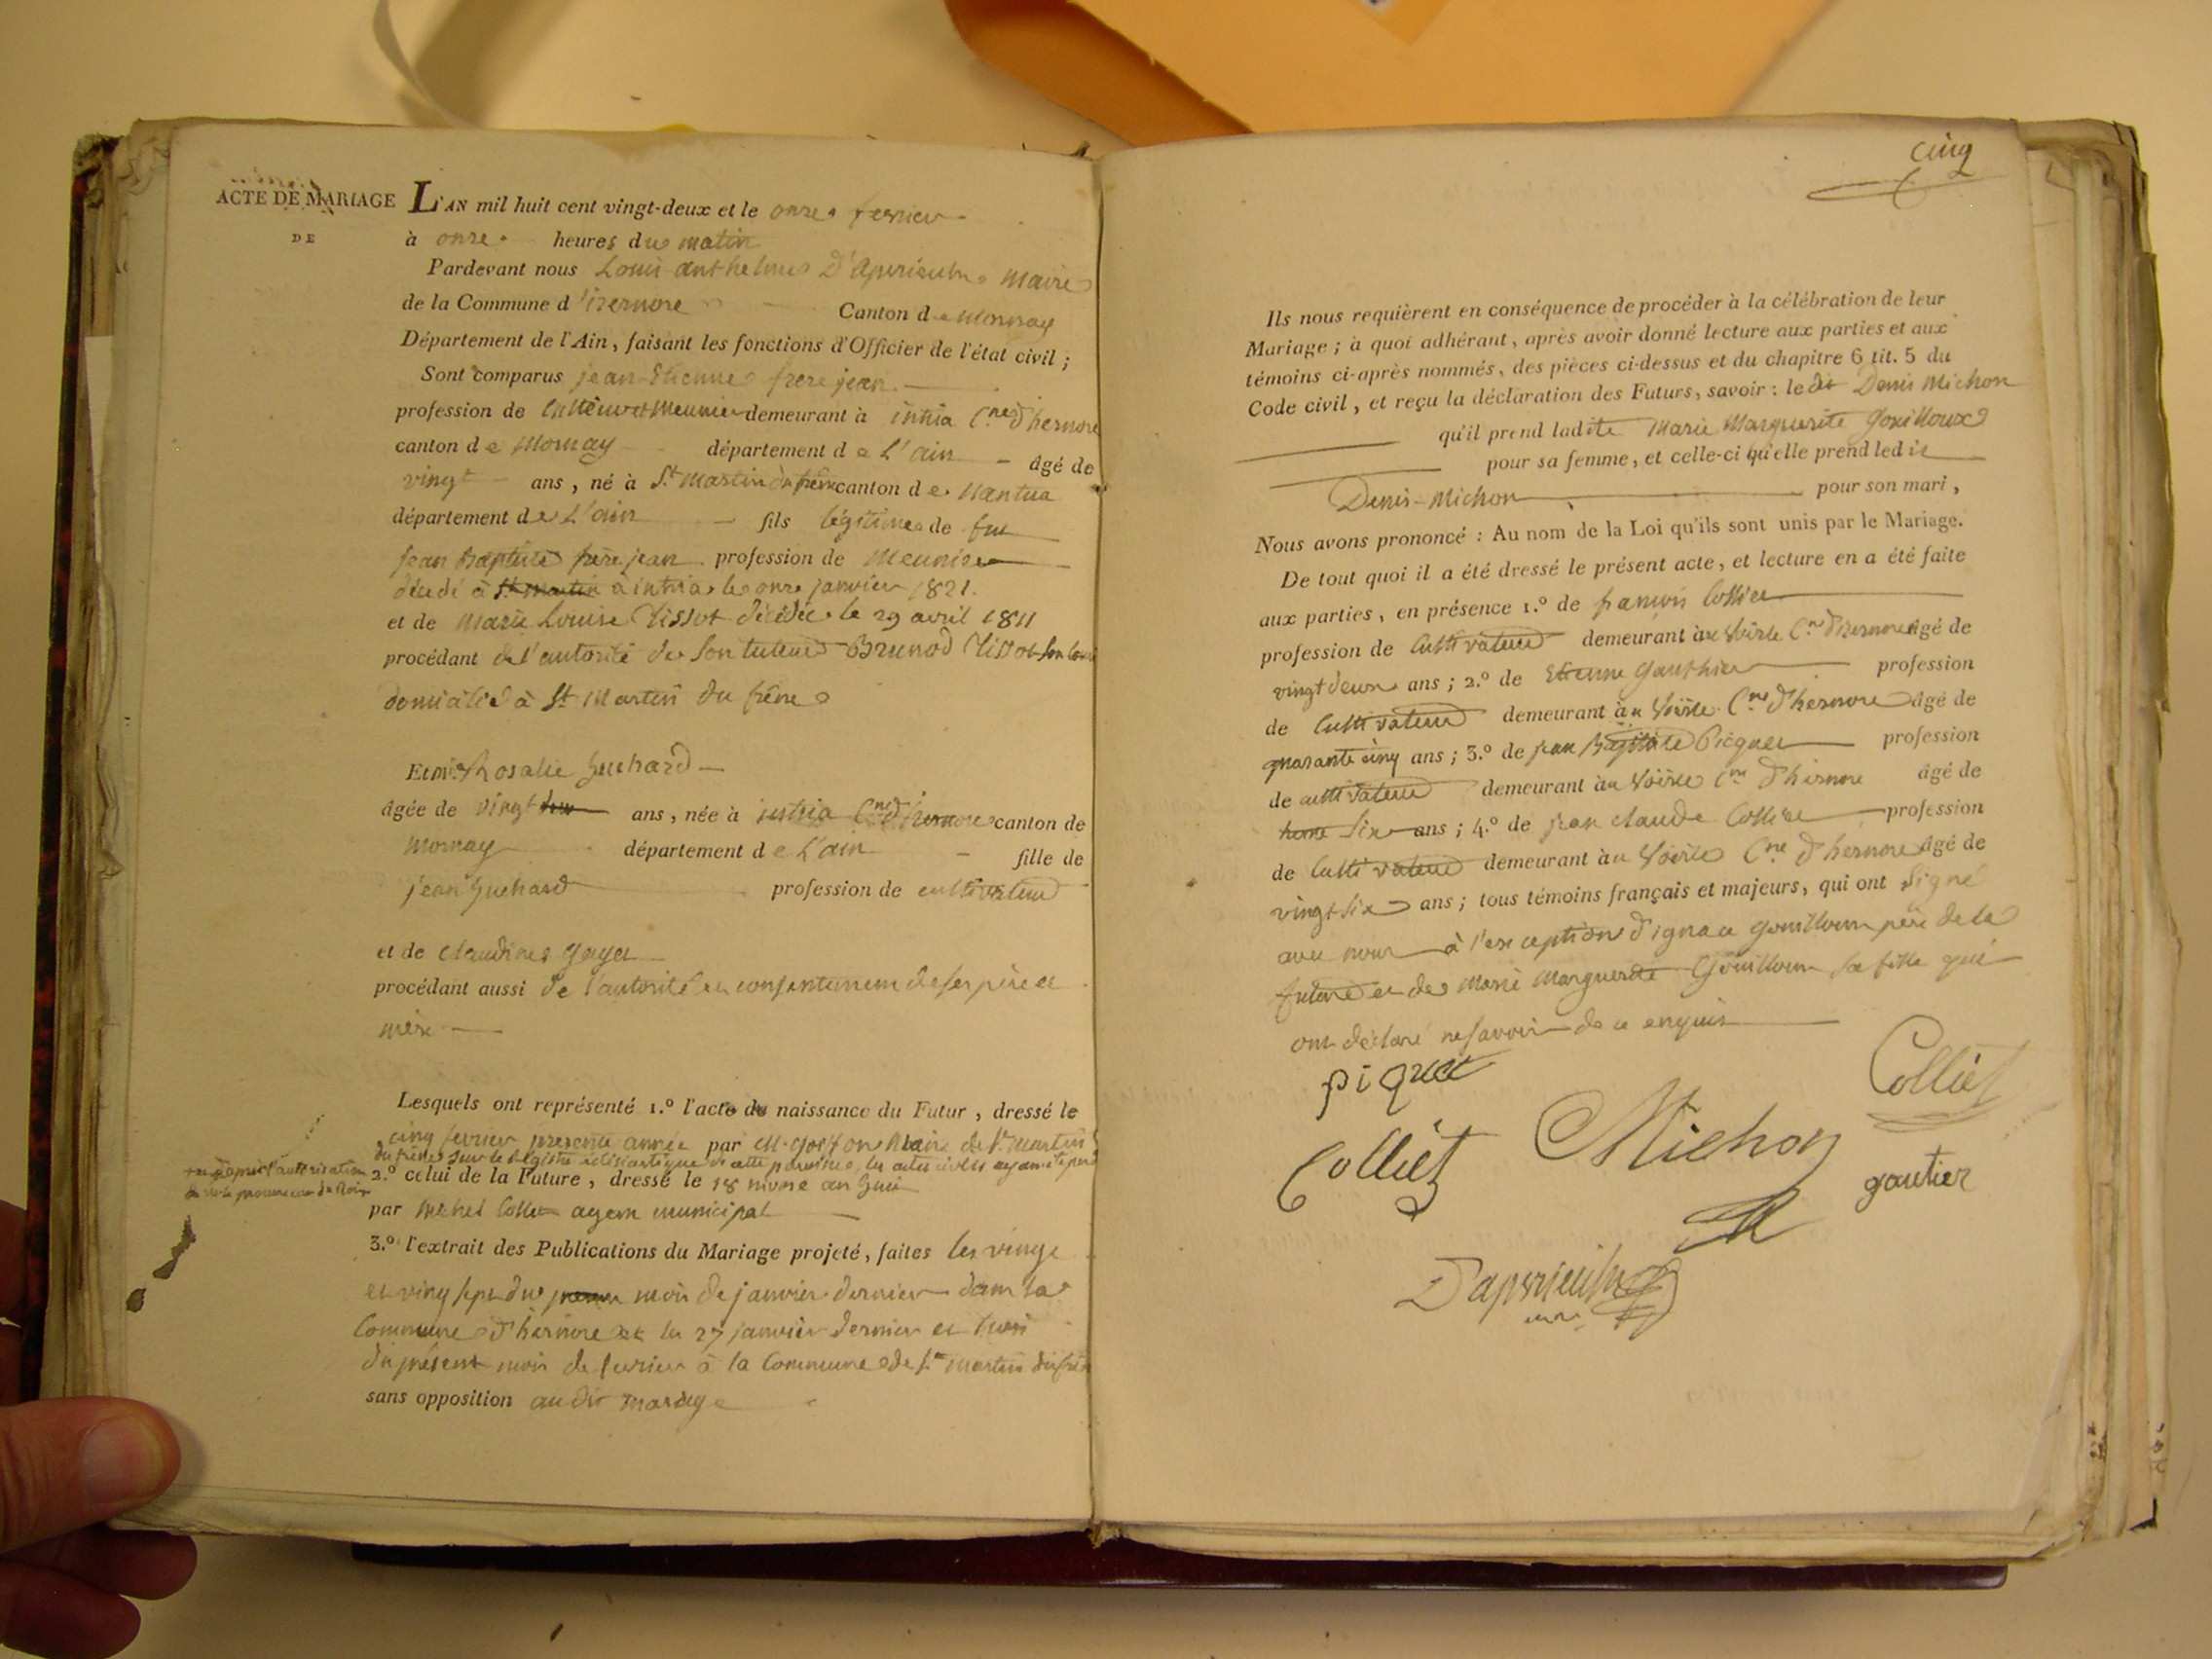 ACTE DE MARIAGE
DE
L'AN mil huit cent vingt-deux et le onze fevrier
à onze heures du matin
Pardevant nous Louis anthelme D'Apvrieulx Maire
de la Commune d'izernore Canton de Mornay
Département de l'Ain, faisant les fonctions d'Officier de l'état civil ;
Sont comparus jean Etienne frere jean
profession de Cultiv et Meunier demeurant à intria C.ne d'hernore
canton de Mornay département de L'ain âgé de
vingt ans, né à S.t Martin du frêne canton de Nantua
département de L'ain fils légitime de feu
jean Baptiste frère jean profession de Meunier
décédé à St Martin à intria le onze janvier 1821.
et de Marie Louise Tissot décédée le 29 avril 1811
procédant de l'autorité de son tuteur Brunod Tissot son
domicilié à St Martin du frêne
Et Rosalie Guchard
âgée de vingt ans, née à intria C.ne d'hernore canton de
Mornay département de L'ain fille de
jean Guchard profession de cultivateur
et de Claudine Goyet
procédant aussi de l'autorité et consentement de ses père et
mère
Lesquels ont représenté 1.º l'acte de naissance du Futur, dressé le
cinq fevrier presente année par M. Maire de St Martin
du frêne sur le Registre éclésiastique de cette paroisse, les actes civils ayant été
vu d'après l'autorisation
de du Roi
2.º celui de la Future, dressé le 18 nivose an huit
par Michel Collet agent municipal
3.º l'extrait des Publications du Mariage projeté, faites les vingt
et vingt sept du mois de janvier dernier dans la
Commune d'hernore et les 27 janvier dernier et trois
du présent mois de fevrier à la Commune de St Martin du frêne
sans opposition audit mariage
cinq
Ils nous requièrent en conséquence de procéder à la célébration de leur
Mariage ; à quoi adhérant, après avoir donné lecture aux parties et aux
témoins ci-après nommés, des pièces ci-dessus et du chapitre 6 tit. 5 du
Code civil, et reçu la déclaration des Futurs, savoir : ledit Denis Michon
qu'il prend ladite Marie Marguerite Gouilloux
pour sa femme, et celle-ci qu'elle prend ledit
Denis Michon pour son mari,
Nous avons prononcé : Au nom de la Loi qu'ils sont unis par le Mariage.
De tout quoi il a été dressé le présent acte, et lecture en a été faite
aux parties, en présence 1.º de françois Colliet
profession de Cultivateur demeurant au Voërle C.ne d'hernore âgé de
vingt deux ans ; 2.º de Etienne Gauthier profession
de Cultivateur demeurant au Voërle C.ne d'hernore âgé de
quarante cinq ans ; 3.º de jean Baptiste Picquet profession
de cultivateur demeurant au Voërle C.ne d'hernore âgé de
trente six ans ; 4.º de jean claude Colliet profession
de Cultivateur demeurant au Voërle C.ne d'hernore âgé de
vingt six ans ; tous témoins français et majeurs, qui ont signé
avec nous à l'exception d'ignace Gouilloux père de la
future et de Marie Marguerite Gouilloux sa fille qui
ont déclaré ne savoir de ce enquis
piquet
Colliet
Colliet
Michon
gautier
Dapvrieulx